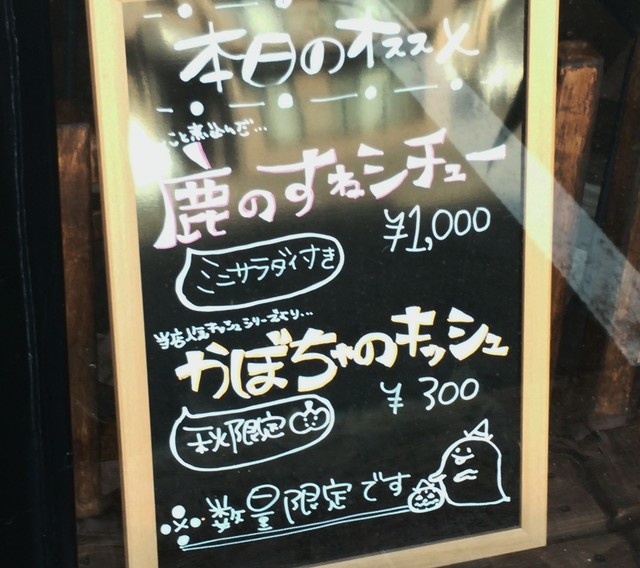 本日のオススメ
こと煮込んで...
鹿のすねシチュー
¥1,000
ミニサラダ付き
当店人気キッシュシリーズより...
かぼちゃのキッシュ
¥300
秋限定
※数量限定です